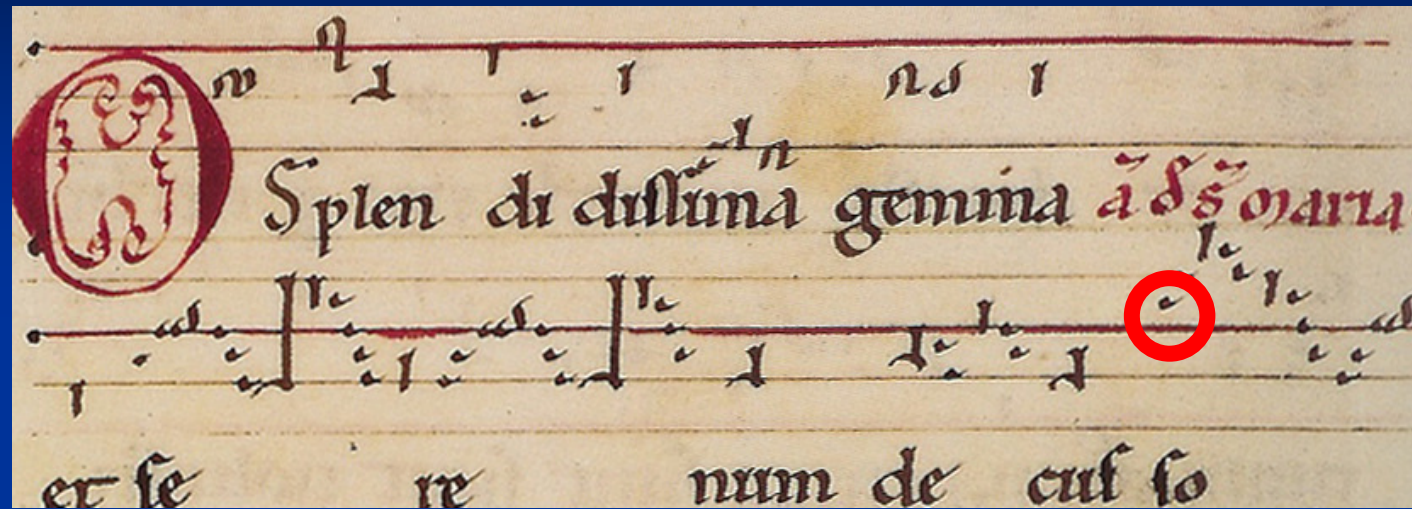 O Splen di dissima gemma ã de s̃ maria
et se re num de cus so